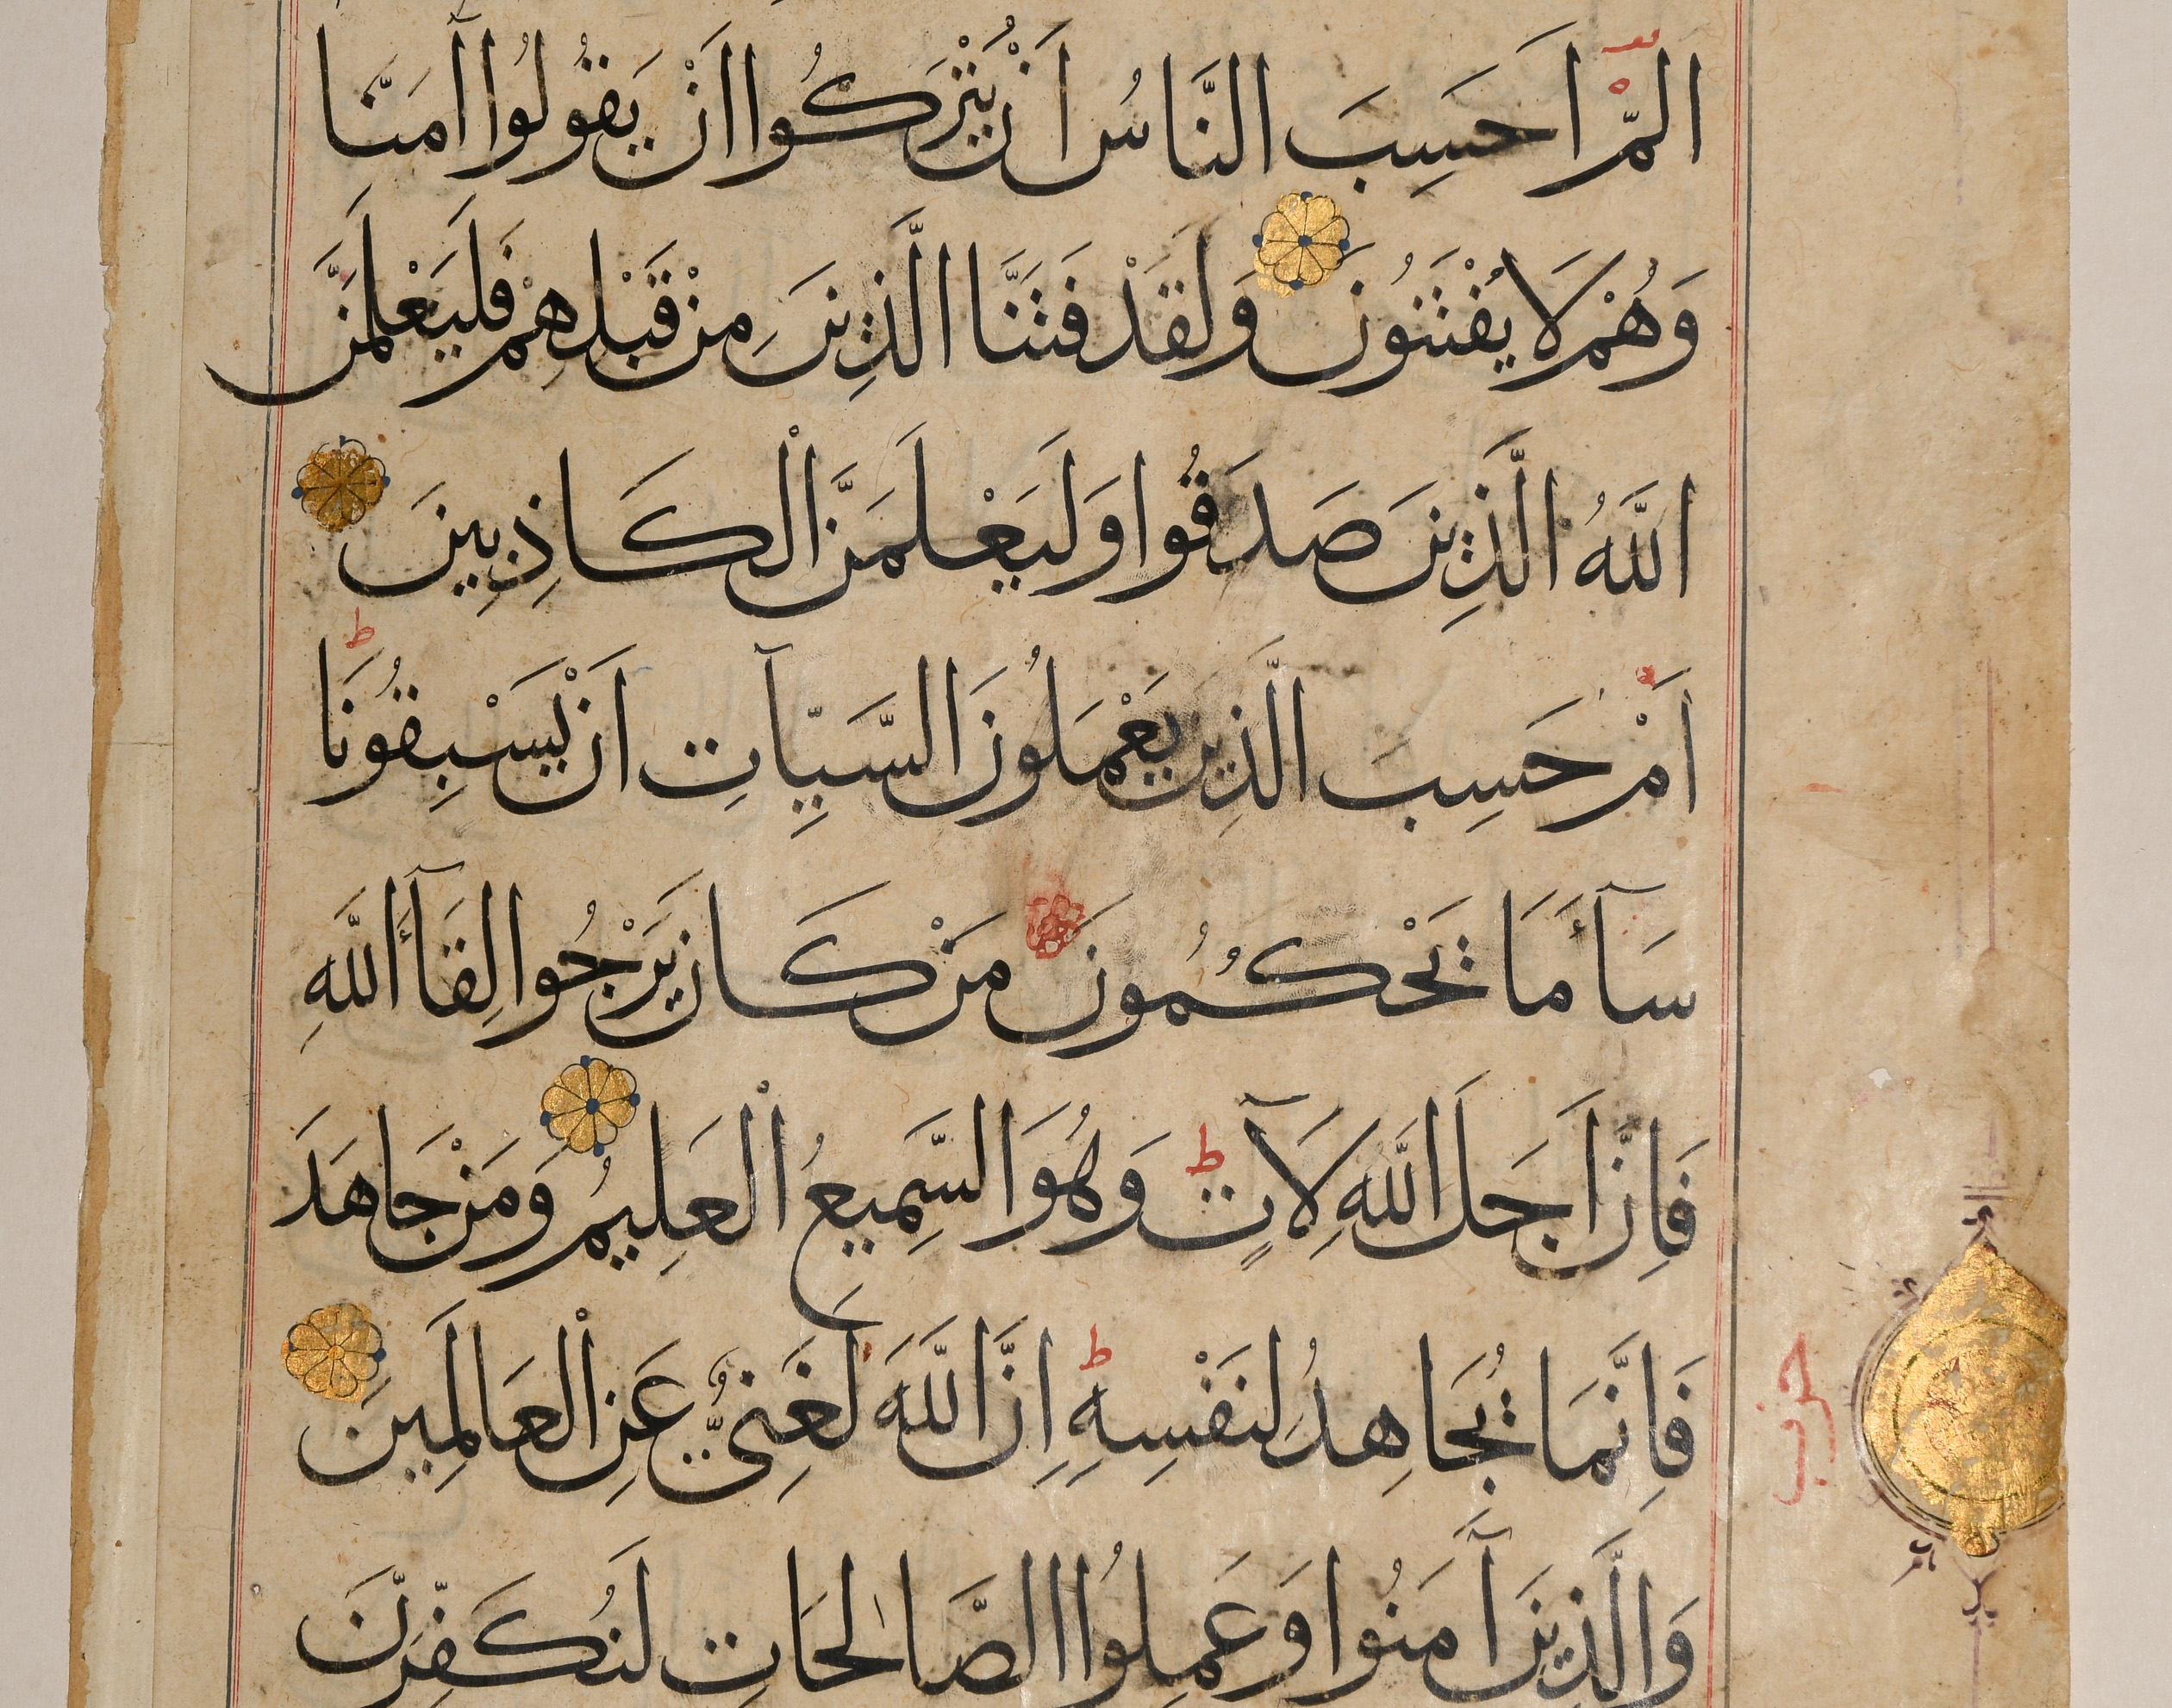 الٓمّٓ اَحَسِبَ النَّاسُ اَنْ يُتْرَكُوا اَنْ يَقُولُوا آمَنَّا
وَهُمْ لَا يُفْتَنُونَ وَلَقَدْ فَتَنَّا الَّذِينَ مِنْ قَبْلِهِمْ فَلَيَعْلَمَنَّ
اللَّهُ الَّذِينَ صَدَقُوا وَلَيَعْلَمَنَّ الْكَاذِبِينَ
اَمْ حَسِبَ الَّذِينَ يَعْمَلُونَ السَّيِّآتِ اَنْ يَسْبِقُونَا ط
سَآءَ مَا يَحْكُمُونَ مَنْ كَانَ يَرْجُوا لِقَآءَ اللَّهِ
فَاِنَّ اَجَلَ اللَّهِ لَآتٍ ط وَهُوَ السَّمِيعُ الْعَلِيمُ وَمَنْ جَاهَدَ
فَاِنَّمَا يُجَاهِدُ لِنَفْسِهِ ط اِنَّ اللَّهَ لَغَنِيٌّ عَنِ الْعَالَمِينَ
حزب
وَالَّذِينَ آمَنُوا وَعَمِلُوا الصَّالِحَاتِ لَنُكَفِّرَنَّ